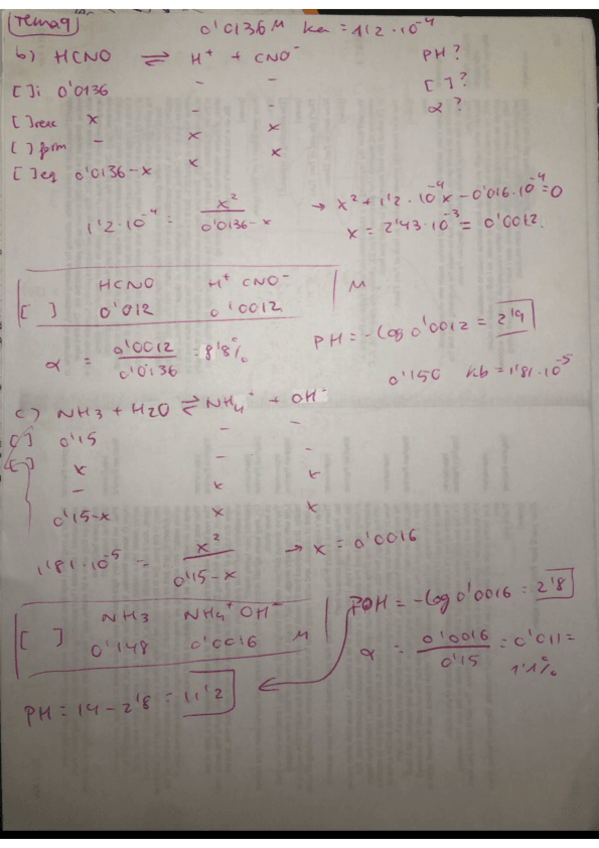 Tema 9 0'0136 M ka = 1'2·10⁻⁴
b) HCNO ⇌ H⁺ + CNO⁻ PH?
[ ]i 0'0136 - - [ ]?
[ ]reac x - - α?
[ ]form - x x
[ ]eq 0'0136-x x x
1'2·10⁻⁴ = x²/0'0136-x → x² + 1'2·10⁻⁴x - 0'016·10⁻⁴ = 0
x = 2'43·10⁻³ = 0'0012.
HCNO H⁺ CNO⁻
[ ] 0'012 0'0012 M
PH = -log 0'0012 = 2'9
α = 0'0012/0'0136 = 8'8%
0'150 kb = 1'81·10⁻⁵
c) NH3 + H2O ⇌ NH4⁺ + OH⁻
[ ] 0'15 - -
[ ] x - -
- x x
0'15-x x x
1'81·10⁻⁵ = x²/0'15-x → x = 0'0016
NH3 NH4⁺ OH⁻
[ ] 0'148 0'0016 M
POH = -log 0'0016 = 2'8
α = 0'0016/0'15 = 0'011 =
1'1%
PH = 14 - 2'8 = 11'2